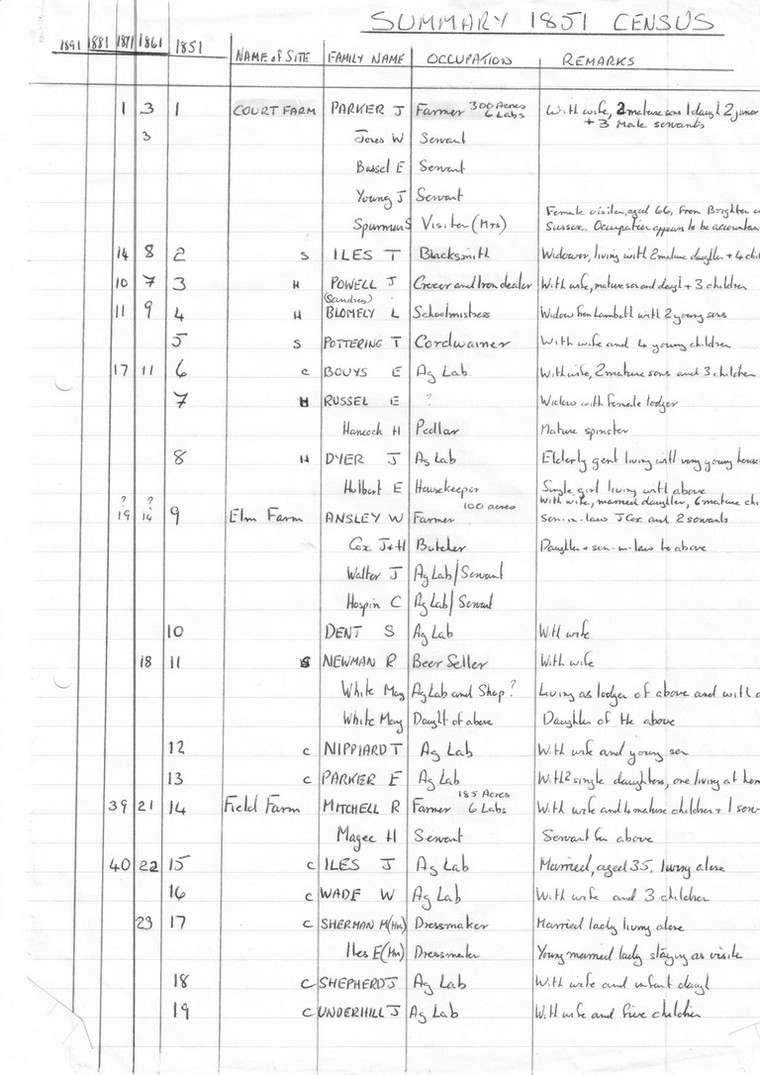 SUMMARY 1851 CENSUS
1891 1881 1871 1861 1851 NAME of SITE FAMILY NAME OCCUPATION REMARKS
1 3 1 COURT FARM PARKER J Farmer 300 Acres 6 Labs With wife, 2 mature sons 1 daught 2 junior
+ 3 Male servants
3 Jones W Servant
Bussel E Servant
Young J Servant
Female visitor, aged 66, from Brighton
Spurmun S Visitor (Mrs) Sussex. Occupation appears to be accountan
14 8 2 S ILES T Blacksmith Widower, living with 2 mature daughter + 4 chil
10 7 3 H POWELL J Grocer and Iron dealer With wife, mature son and daught + 3 children
(Sandres)
11 9 4 H BLOMELY L Schoolmistress Widow from Lambeth with 2 young sons
5 S POTTERING T Cordwainer With wife and 4 young children
17 11 6 C BOUYS E Ag Lab. With wife, 2 mature sons and 3 children
7 H RUSSEL E ? Widow with female lodger
Hancock H Pedlar Mature spinster
8 H DYER J Ag Lab Elderly gent living with very young house
Hulbert E Housekeeper Single girl living with above
? ? 100 acres With wife, married daughter, 6 mature chi
19 14 9 Elm Farm ANSLEY W Farmer Son-in-law J Cox and 2 servants
Cox J+H Butcher Daughter + son-in-law to above
Walter J Ag Lab/Servant
Hospin C Ag Lab/Servant
10 DENT S Ag Lab With wife
18 11 S NEWMAN R Beer Seller With wife
White May Ag Lab and Shop? Living as lodger of above and with
White May Daught of above Daughter of the above
12 C NIPPIARD T Ag Lab With wife and young son
13 C PARKER E Ag Lab With 2 single daughters, one living at hom
39 21 14 Field Farm MITCHELL R Farmer 185 Acres 6 Labs With wife and 4 mature children + 1 serv
Magee H Servant Servant for above
40 22 15 C ILES J Ag Lab Married, aged 35, living alone
16 C WADE W Ag Lab With wife and 3 children
23 17 C SHERMAN M (Mrs) Dressmaker Married lady living alone
Iles E (Mrs) Dressmaker Young married lady staying as visitor
18 C SHEPHERD J Ag Lab With wife and infant daught
19 C UNDERHILL J Ag Lab With wife and five children